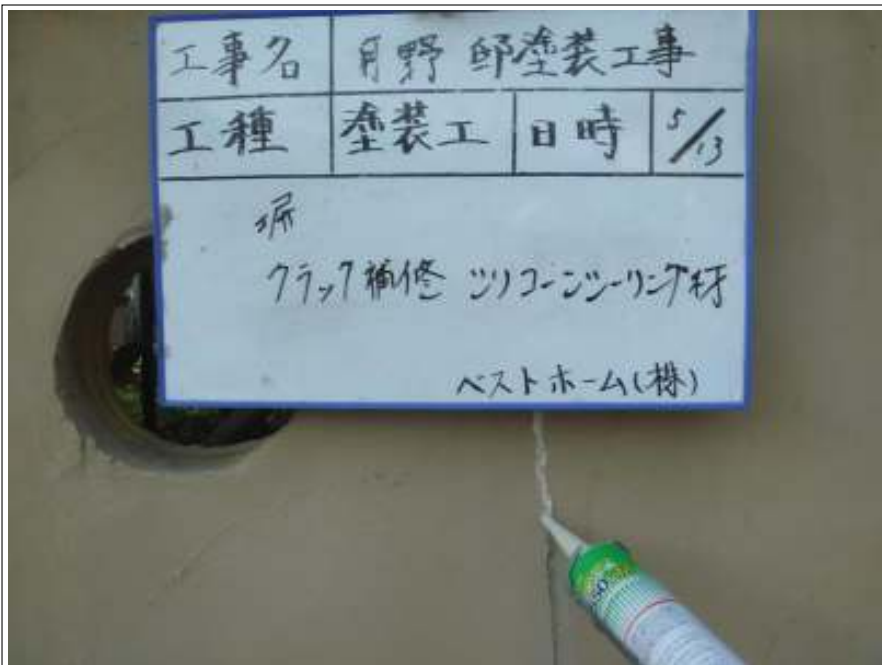 工事名 月野 邸塗装工事
工種 塗装工 日時 5/13
塀
クラック補修 シリコーンシーリング材
ベストホーム(株)